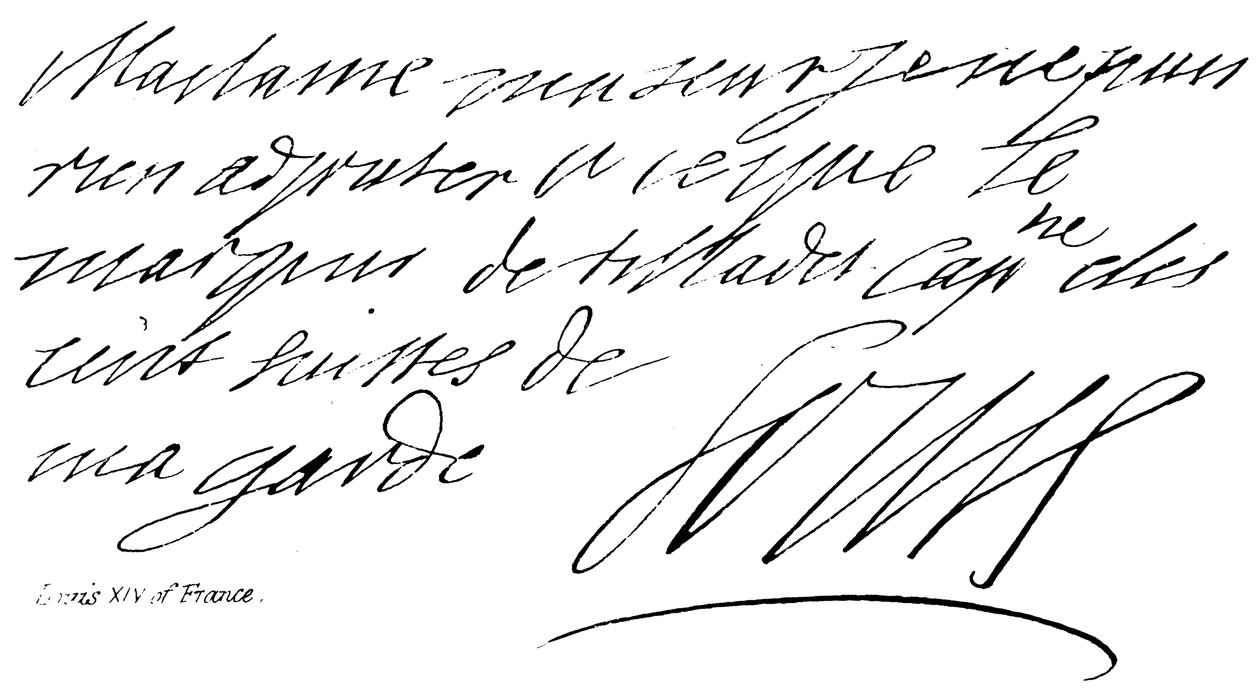 Madame ma seur je ne puis
rien adjouter a ce que le
marquis de tilladet Cap ne des
cent suisses de
ma garde
Louis
Louis XIV of France.